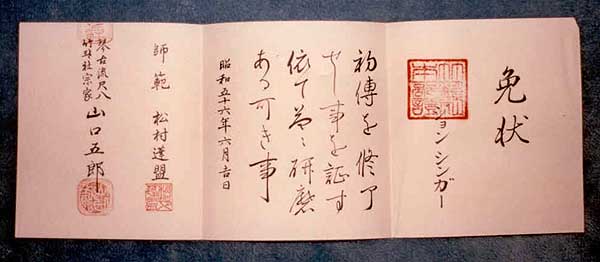 免状
ジョン シンガー
初傳を修了
せし事を証す
依て益々研磨
ある可き事
昭和五十六年六月吉日
師範 松村蓬盟
琴古流尺八
竹盟社宗家
山口五郎